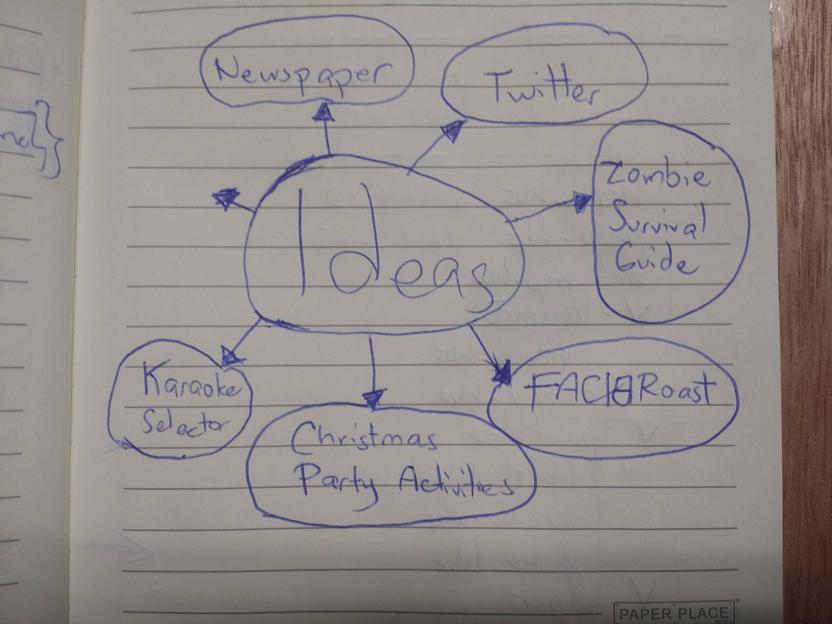 Newspaper
Twitter
Ideas
Zombie
Survival
Guide
Karaoke
Selector
Christmas
Party Activities
Roast
PAPER PLACE